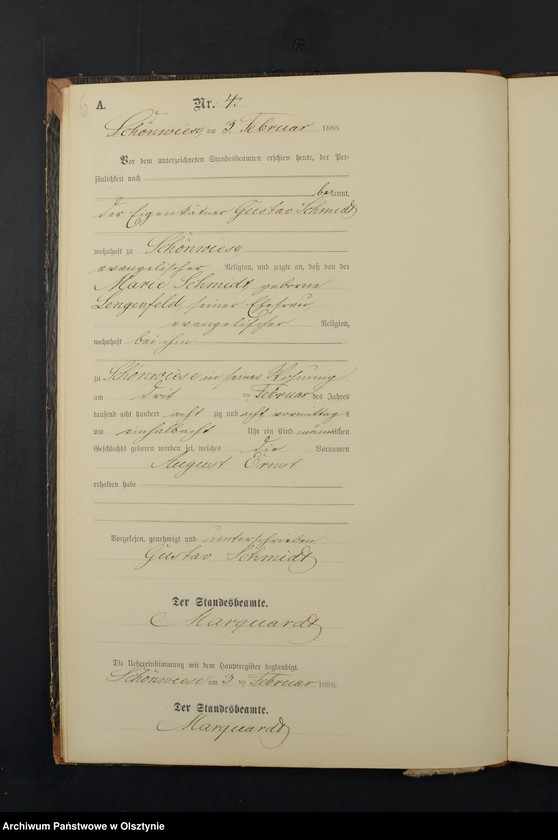 A.
Nr. 4.
Schönwiese, am 3. Februar 1888
Vor dem unterzeichneten Standesbeamten erschien heute, der Per-
sönlichkeit nach
bekannt,
der Eigenkätner Gustav Schmidt
wohnhaft zu Schönwiese
evangelischer Religion, und zeigte an, daß von der
Marie Schmidt, geborne
Lengenfeld, seiner Ehefrau
evangelischer Religion,
wohnhaft bei ihm
zu Schönwiese in seiner Wohnung
am ten Februar des Jahres
tausend acht hundert acht zig und acht vormittags
um einhalbacht Uhr ein Kind männlichen
Geschlechts geboren worden sei, welches die Vornamen
August Ernst
erhalten habe
Vorgelesen, genehmigt und unterschrieben
Gustav Schmidt
Der Standesbeamte.
Marquardt
Die Uebereinstimmung mit dem Hauptregister beglaubigt.
Schönwiese am 3 ten Februar 1888.
Der Standesbeamte.
Marquardt
Archiwum Państwowe w Olsztynie